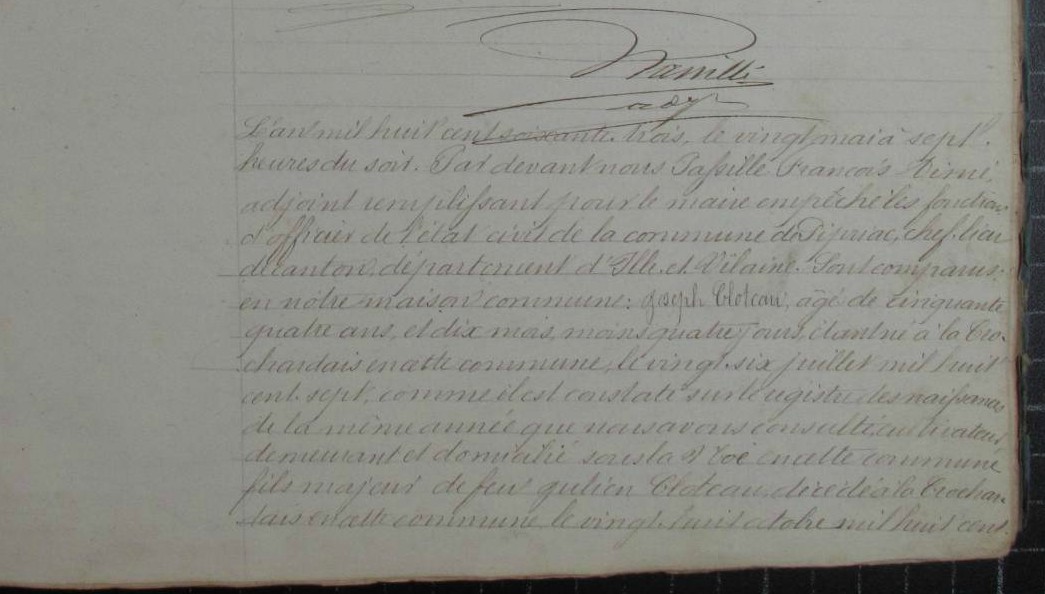 adj
L'an mil huit cent soixante trois, le vingt mai à sept
heures du soir. Par devant nous Passille François
adjoint remplissant pour le maire empêché les fonctions
d'officier de l'état civil de la commune de Pipriac, chef lieu
de canton, département d'Ille et Vilaine. Sont comparus
en notre maison commune: Joseph Cloteau, âgé de cinquante
quatre ans, et dix mois, moins quatre jours, étant né à la Cro-
chardais en cette commune, le vingt six juillet mil huit
cent sept, comme il est constaté sur le registre des naissances
de la même année que nous avons consulté, cultivateur
demeurant et domicilié sous la en cette commune
fils majeur de feu Julien Cloteau, décédé à la Crochar-
dais en cette commune, le vingt huit octobre mil huit cent